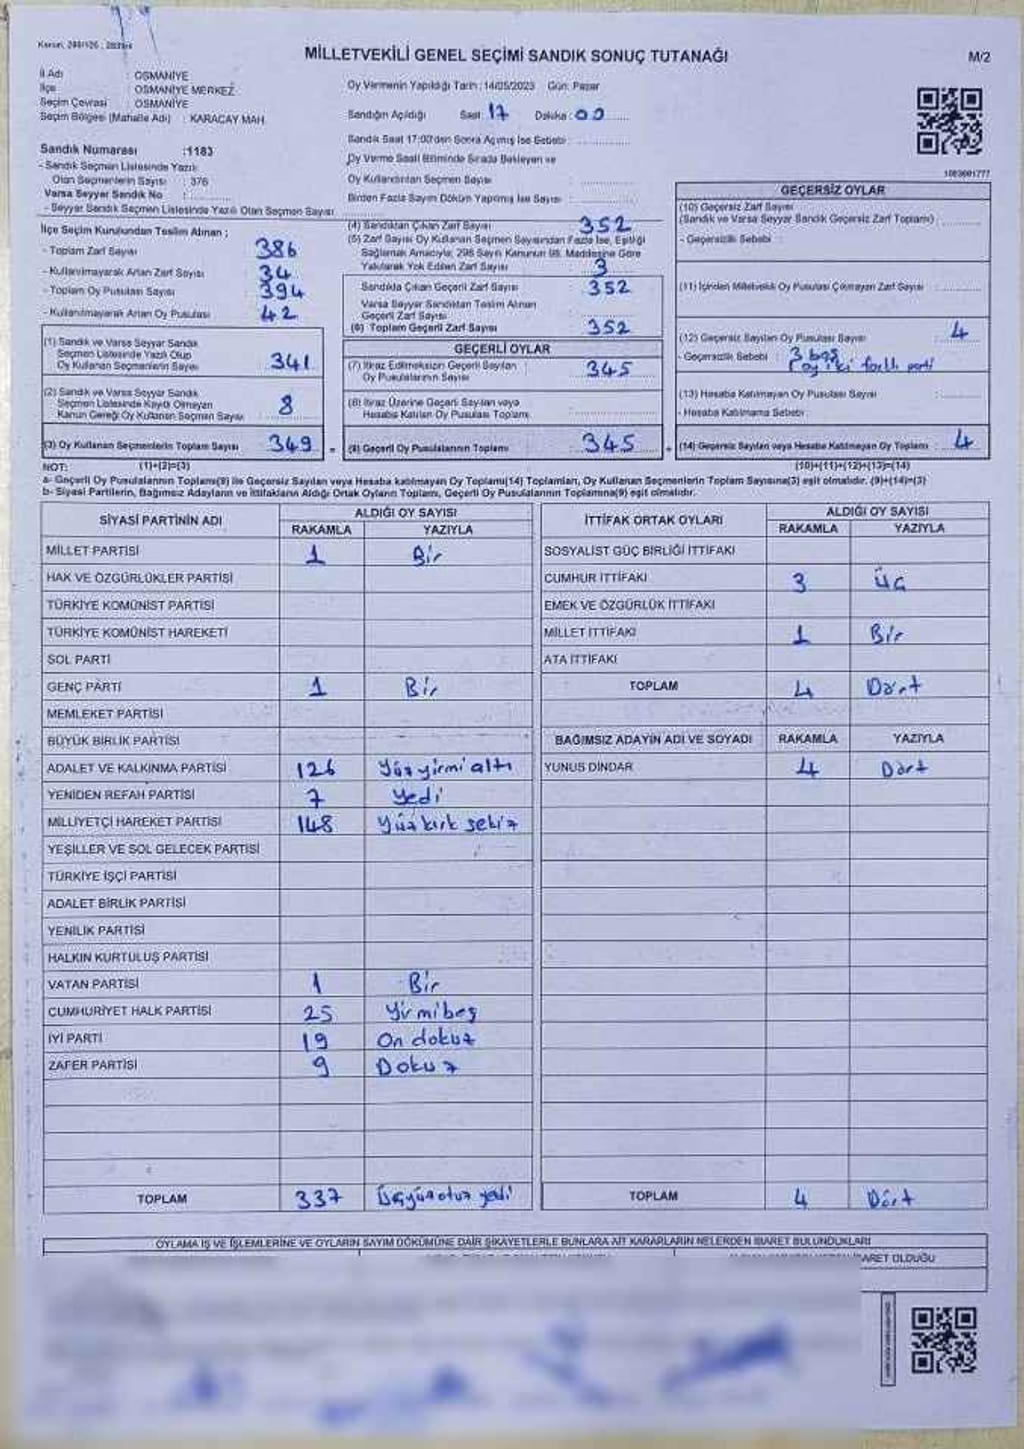 MİLLETVEKİLİ GENEL SEÇİMİ SANDIK SONUÇ TUTANAĞI
M/2
İl Adı : OSMANİYE
İlçe : OSMANİYE MERKEZ
Seçim Çevresi : OSMANİYE
Seçim Bölgesi (Mahalle Adı) : KARACAY MAH.
Sandık Numarası :1183
- Sandık Seçmen Listesinde Yazılı
Olan Seçmenlerin Sayısı : 376
Varsa Seyyar Sandık No :
- Seyyar Sandık Seçmen Listesinde Yazılı Olan Seçmen Sayısı
Oy Vermenin Yapıldığı Tarih : 14/05/2023 Gün: Pazar
Sandığın Açıldığı Saat: 17 Dakika: 00
Sandık Saat 17:00'den Sonra Açılmış İse Sebebi :
Oy Verme Saati Bitiminde Sırada Bekleyen ve
Oy Kullandırılan Seçmen Sayısı
Birden Fazla Sayım Döküm Yapılmış İse Sayısı :
İlçe Seçim Kurulundan Teslim Alınan ;
- Toplam Zarf Sayısı 386
- Kullanılmayarak Artan Zarf Sayısı 34
- Toplam Oy Pusulası Sayısı 394
- Kullanılmayarak Artan Oy Pusulası 42
(1) Sandık ve Varsa Seyyar Sandık
Seçmen Listesinde Yazılı Olup
Oy Kullanan Seçmenlerin Sayısı 341
(2) Sandık ve Varsa Seyyar Sandık
Seçmen Listesinde Kayıtlı Olmayan
Kanun Gereği Oy Kullanan Seçmen Sayısı 8
(3) Oy Kullanan Seçmenlerin Toplam Sayısı 349
(4) Sandıktan Çıkan Zarf Sayısı 352
(5) Zarf Sayısı Oy Kullanan Seçmen Sayısından Fazla İse, Eşitliği
Sağlamak Amacıyla; 298 Sayılı Kanunun 98. Maddesine Göre
Yakılarak Yok Edilen Zarf Sayısı 3
Sandıkta Çıkan Geçerli Zarf Sayısı : 352
Varsa Seyyar Sandıktan Teslim Alınan
Geçerli Zarf Sayısı
(6) Toplam Geçerli Zarf Sayısı 352
GEÇERLİ OYLAR
(7) İtiraz Edilmeksizin Geçerli Sayılan
Oy Pusulalarının Sayısı 345
(8) İtiraz Üzerine Geçerli Sayılan veya
Hesaba Katılan Oy Pusulası Toplamı
(9) Geçerli Oy Pusulalarının Toplamı 345
1083001777
GEÇERSİZ OYLAR
(10) Geçersiz Zarf Sayısı
(Sandık ve Varsa Seyyar Sandık Geçersiz Zarf Toplamı)
- Geçersizlik Sebebi :
(11) İçinden Milletvekili Oy Pusulası Çıkmayan Zarf Sayısı
(12) Geçersiz Sayılan Oy Pusulası Sayısı 4
- Geçersizlik Sebebi : 3 boş
oy iki farklı parti
(13) Hesaba Katılmayan Oy Pusulası Sayısı
- Hesaba Katılmama Sebebi :
(14) Geçersiz Sayılan veya Hesaba Katılmayan Oy Toplamı : 4
NOT: (1)+(2)=(3)
(10)+(11)+(12)+(13)=(14)
a- Geçerli Oy Pusulalarının Toplamı(9) ile Geçersiz Sayılan veya Hesaba katılmayan Oy Toplamı(14) Toplamları, Oy Kullanan Seçmenlerin Toplam Sayısına(3) eşit olmalıdır. (9)+(14)=(3)
b- Siyasi Partilerin, Bağımsız Adayların ve İttifakların Aldığı Ortak Oyların Toplamı, Geçerli Oy Pusulalarının Toplamına(9) eşit olmalıdır.
SİYASİ PARTİNİN ADI ALDIĞI OY SAYISI
RAKAMLA YAZIYLA
MİLLET PARTİSİ 1 Bir
HAK VE ÖZGÜRLÜKLER PARTİSİ
TÜRKİYE KOMÜNİST PARTİSİ
TÜRKİYE KOMÜNİST HAREKETİ
SOL PARTİ
GENÇ PARTİ 1 Bir
MEMLEKET PARTİSİ
BÜYÜK BİRLİK PARTİSİ
ADALET VE KALKINMA PARTİSİ 126 Yüz yirmi altı
YENİDEN REFAH PARTİSİ 7 Yedi
MİLLİYETÇİ HAREKET PARTİSİ 148 Yüz kırk sekiz
YEŞİLLER VE SOL GELECEK PARTİSİ
TÜRKİYE İŞÇİ PARTİSİ
ADALET BİRLİK PARTİSİ
YENİLİK PARTİSİ
HALKIN KURTULUŞ PARTİSİ
VATAN PARTİSİ 1 Bir
CUMHURİYET HALK PARTİSİ 25 Yirmibeş
İYİ PARTİ 19 On dokuz
ZAFER PARTİSİ 9 Dokuz
TOPLAM 337 Üçyüz otuz yedi
İTTİFAK ORTAK OYLARI ALDIĞI OY SAYISI
RAKAMLA YAZIYLA
SOSYALİST GÜÇ BİRLİĞİ İTTİFAKI
CUMHUR İTTİFAKI 3 Üç
EMEK VE ÖZGÜRLÜK İTTİFAKI
MİLLET İTTİFAKI 1 Bir
ATA İTTİFAKI
TOPLAM 4 Dört
BAĞIMSIZ ADAYIN ADI VE SOYADI RAKAMLA YAZIYLA
YUNUS DİNDAR 4 Dört
TOPLAM 4 Dört
OYLAMA İŞ VE İŞLEMLERİNE VE OYLARIN SAYIM DÖKÜMÜNE DAİR ŞİKAYETLERLE BUNLARA AİT KARARLARIN NELERDEN İBARET BULUNDUKLARI
OLDUĞU